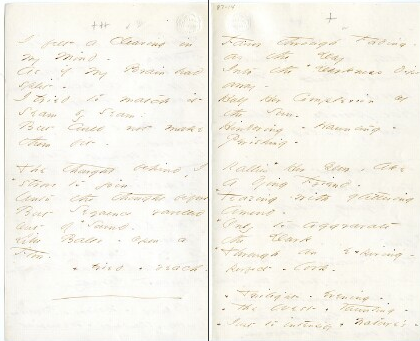 I felt a Cleaving in
my Mind -
As if my Brain had
split -
I tried to match it -
Seam by Seam -
But could not make
them fit -
The thought behind, I
strove to join
Unto the thought before -
But Sequence ravelled
out of Sound
Like Balls - upon a
Floor -
tried · reach ·
Fairer through Fading
as the Day
Into the Darkness dips
away -
Half Her Complexion of
the Sun -
Hindering - Haunting -
Perishing -
Rallies Her Glow, like
a dying Friend -
Teasing with glittering
Amend -
Only to aggravate
the Dark
Through an expiring -
perfect - look -
· Twilight · Evening ·
· Just to intensify · Nature's